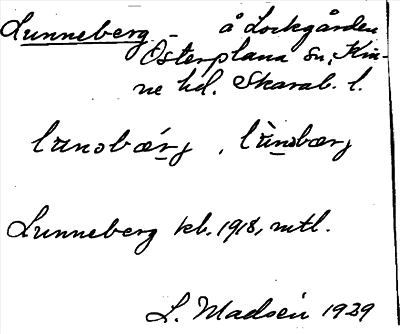 Lunneberg - å Lockgården
Österplana sn, Kin-
ne hd. Skarab. l.
Lunneberg kb. 1918, mtl.
L. Madsén 1929